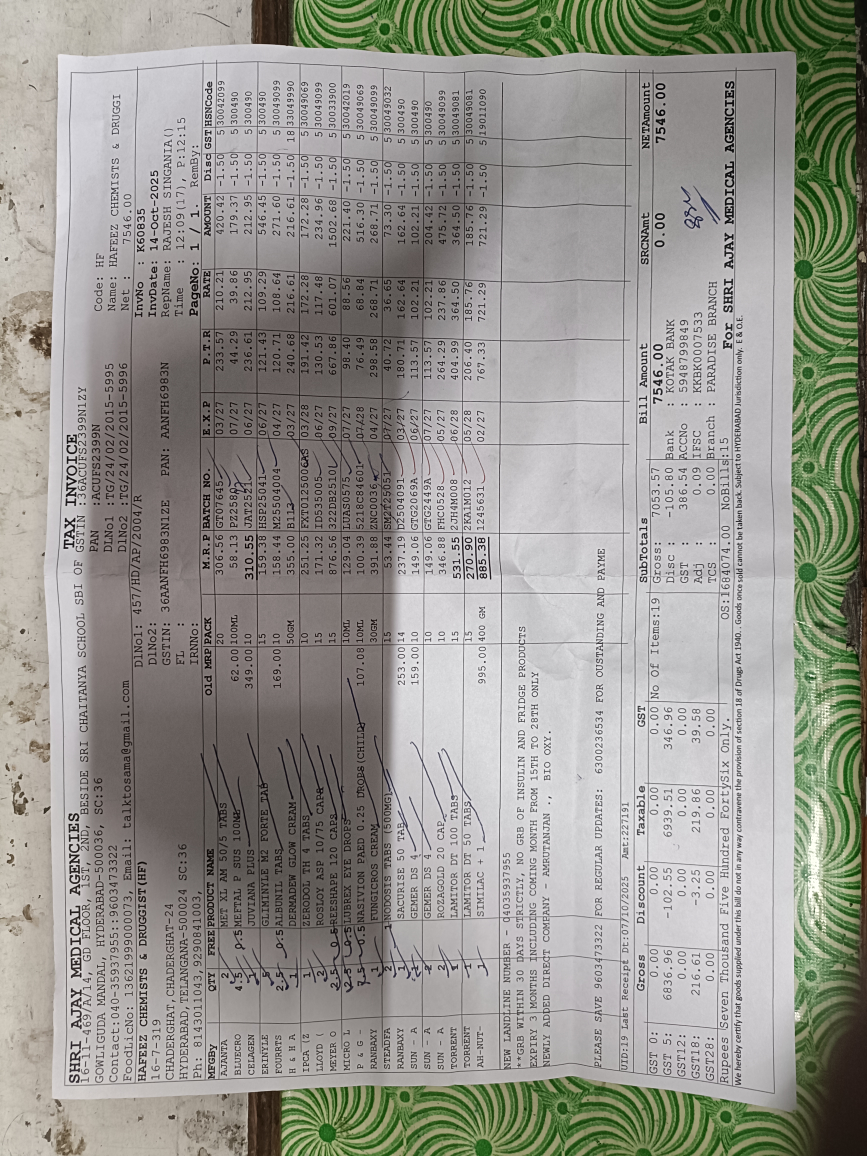 TAX INVOICE
SHRI AJAY MEDICAL AGENCIES
16-11-469/A/14, GD FLOOR, 1ST, 2ND, BESIDE SRI CHAITANYA SCHOOL SBI OF GSTIN :36ACUFS2399N1ZY
GOWLIGUDA MANDAL, HYDERABAD-500036, SC:36 PAN :ACUFS2399N Code: HF
Contact:040-35937955::9603473322 DLNo1 :TG/24/02/2015-5995 Name: HAFEEZ CHEMISTS & DRUGGI
FoodLicNo: 13621999000073, Email: talktosama@gmail.com DLNo2 :TG/24/02/2015-5996 Net : 7546.00
HAFEEZ CHEMISTS & DRUGGIST(HF) DlNo1: 457/HD/AP/2004/R InvNo : K60835
16-7-319 DlNo2: InvDate: 14-Oct-2025
CHADERGHAT,CHADERGHAT-24 GSTIN: 36AANFH6983N1ZE PAN: AANFH6983N RepName: RAJESH SINGANIA()
HYDERABAD,TELANGANA-500024 SC:36 FL : Time : 12:09(17), P:12:15
Ph: 8143011043,9290841003 IRNNo: PageNo: 1 / 1 RemBy:
MFGBy QTY FREE PRODUCT NAME Old MRP PACK M.R.P BATCH NO. E.X.P P.T.R RATE AMOUNT Disc GST HSNCode
AJANTA 2 MET XL AM 50/5 TABS 20 306.56 GT07645 03/27 233.57 210.21 420.42 -1.50 5 30042099
BLUECRO 4.5 0.5 MEFTAL P SUS 100ML 62.00 100ML 58.13 07/27 44.29 39.86 179.37 -1.50 5 300490
CELAGEN 1 JUVIANA PLUS 349.00 10 310.55 06/27 236.61 212.95 212.95 -1.50 5 300490
ERINYLE 5 GLIMINYLE M2 FORTE TAB 15 159.38 HSP25041 06/27 121.43 109.29 546.45 -1.50 5 300490
FOURRTS 2.5 0.5 ALBUNIL TABS 169.00 10 158.44 M25504004 04/27 120.71 108.64 271.60 -1.50 5 30049099
H & H A 1 DERMADEW GLOW CREAM 50GM 355.00 B113 03/27 240.68 216.61 216.61 -1.50 18 33049990
IPCA (Z 1 ZERODOL TH 4 TABS 10 251.25 03/28 191.42 172.28 172.28 -1.50 5 30049069
LLOYD ( 2 ROSLOY ASP 10/75 CAPS 15 171.32 ID535005 06/27 130.53 117.48 234.96 -1.50 5 30049099
MEYER O 2.5 0.5 REESHAPE 120 CAPS 15 876.56 322DB2510L 09/27 667.86 601.07 1502.68 -1.50 5 30033900
MICRO L 2.5 0.5 LUBREX EYE DROPS 10ML 129.04 LUAS0575 07/27 98.40 88.56 221.40 -1.50 5 30042019
P & G - 7.5 0.5 NASIVION PAED 0.25 DROPS(CHILD) 107.08 10ML 100.39 5218C84601 07/28 76.49 68.84 516.30 -1.50 5 30049069
RANBAXY 1 FUNGICROS CREAM 30GM 391.88 ZNC0036 04/27 298.58 268.71 268.71 -1.50 5 30049099
STEADFA 2 NODOSIS TABS (500MG) 15 53.44 SM2T25051 07/27 40.72 36.65 73.30 -1.50 5 30049032
RANBAXY 1 SACURISE 50 TAB 253.00 14 237.19 D2504091 03/27 180.71 162.64 162.64 -1.50 5 300490
SUN - A 1 GEMER DS 4 159.00 10 149.06 GTG2069A 06/27 113.57 102.21 102.21 -1.50 5 300490
SUN - A 2 GEMER DS 4 10 149.06 GTG2449A 07/27 113.57 102.21 204.42 -1.50 5 300490
SUN - A 2 ROZAGOLD 20 CAP 10 346.88 FHC0528 05/27 264.29 237.86 475.72 -1.50 5 30049099
TORRENT 1 LAMITOR DT 100 TABS 15 531.55 2JH4M008 06/28 404.99 364.50 364.50 -1.50 5 30049081
TORRENT 1 LAMITOR DT 50 TABS 15 270.90 2KA1M012 05/28 206.40 185.76 185.76 -1.50 5 30049081
AH-NUT- 1 SIMILAC + 1 995.00 400 GM 885.38 1245631 02/27 767.33 721.29 721.29 -1.50 5 19011090
NEW LANDLINE NUMBER - 04035937955
**GRB WITHIN 30 DAYS STRICTLY, NO GRB OF INSULIN AND FRIDGE PRODUCTS
EXPIRY 3 MONTHS INCLUDING COMING MONTH FROM 15TH TO 28TH ONLY
NEWLY ADDED DIRECT COMPANY - AMRUTANJAN ., BIO OXY.
PLEASE SAVE 9603473322 FOR REGULAR UPDATES: 6300236534 FOR OUSTANDING AND PAYME
UID:19 Last Receipt Dt:07/10/2025 Amt:227191
Gross Discount Taxable GST SubTotals Bill Amount SRCNAmt NETAmount
GST 0: 0.00 0.00 0.00 0.00 No Of Items:19 Gross: 7053.57 7546.00 0.00 7546.00
GST 5: 6836.96 -102.55 6939.51 346.96 Disc : -105.80 Bank : KOTAK BANK
GST12: 0.00 0.00 0.00 0.00 GST : 386.54 ACCNo : 5948799849
GST18: 216.61 -3.25 219.86 39.58 Adj : 0.09 IFSC : KKBK0007533
GST28: 0.00 0.00 0.00 0.00 TCS : 0.00 Branch : PARADISE BRANCH
Rupees Seven Thousand Five Hundred FortySix Only. OS:1684074.00 NoBills:15 For SHRI AJAY MEDICAL AGENCIES
We hereby certify that goods supplied under this bill do not in any way contravene the provision of section 18 of Drugs Act 1940. . Goods once sold cannot be taken back. Subject to HYDERABAD Jurisdiction only. E & O.E.